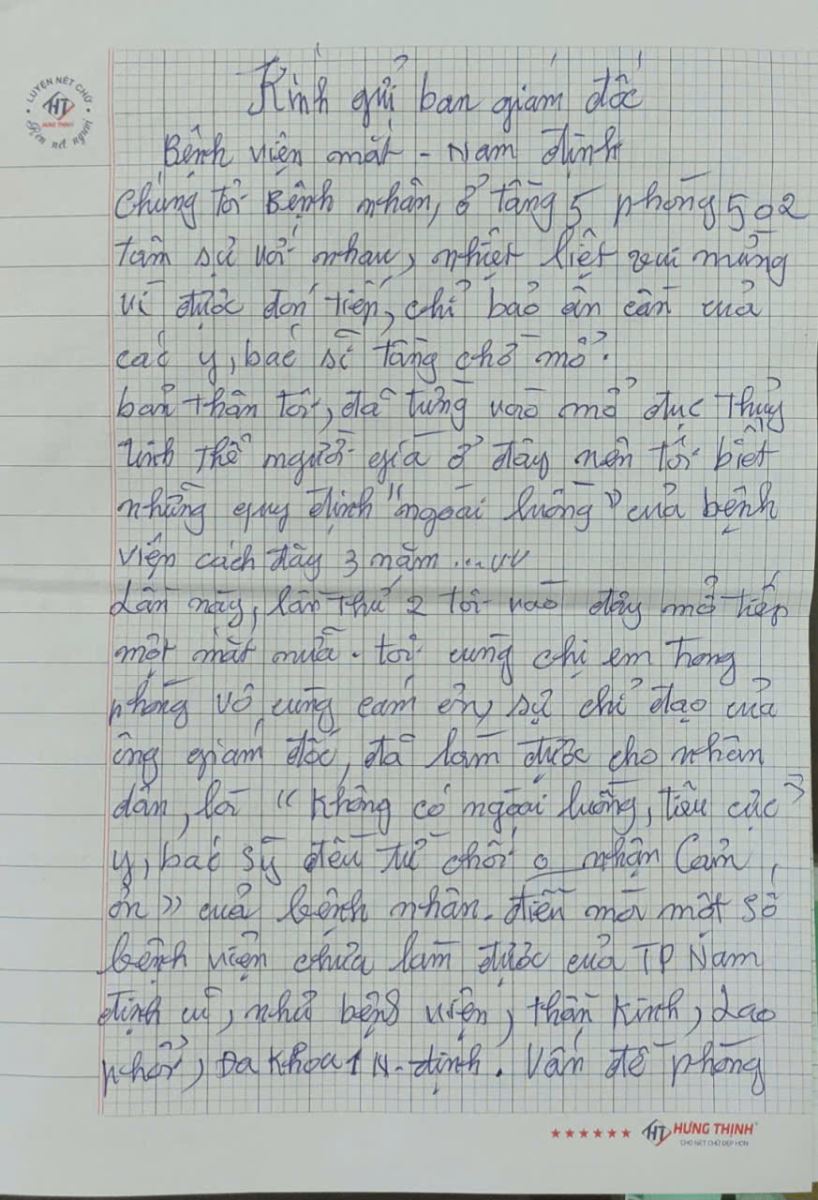 LUYỆN NÉT CHỮ
HT
HƯNG THỊNH
Rèn nết người
Kính gửi ban giám đốc
Bệnh viện mắt - Nam định
Chúng tôi Bệnh nhân, ở tầng 5 phòng 502
tâm sự với nhau, nhiệt liệt vui mừng
vì được đón tiếp, chỉ bảo ân cần của
các y, bác sĩ tầng chờ mổ.
bản thân tôi, đã từng vào mổ đục thủy
tinh thể người già ở đây nên tôi biết
những quy định "ngoài luồng" của bệnh
viện cách đây 3 năm...vv
Lần này, lần thứ 2 tôi vào đây mổ tiếp
một mắt nữa. tôi cùng chị em trong
phòng vô cùng cảm ơn, sự chỉ đạo của
ông giám đốc, đã làm được cho nhân
dân, là "không có ngoài luồng, tiêu cực"
y, bác sỹ đều từ chối o nhận Cảm
ơn" của bệnh nhân. điều mà một số
bệnh viện chưa làm được của TP Nam
định cũ, như bệnh viện, thần kinh, Lao
phổi, Đa khoa 1 N-định. Vấn đề phòng
HT HƯNG THỊNH
CHO NÉT CHỮ ĐẸP HƠN